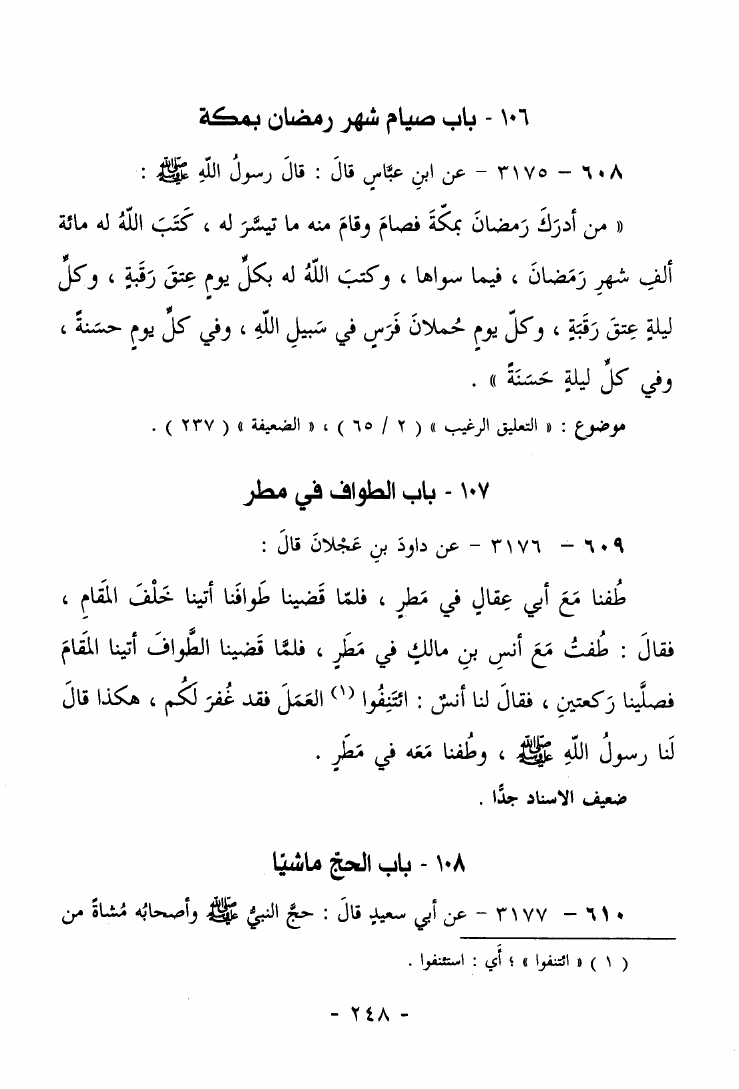 ١٠٦ - باب صيام شهر رمضان بمكة
٦٠٨ - ٣١٧٥ - عن ابنِ عبَّاسٍ قالَ : قالَ رسولُ اللّهِ ﷺ :
« من أدرَكَ رَمضانَ بمكّةَ فصامَ وقامَ منه ما تيسَّرَ له ، كَتَبَ اللّهُ له مائة
ألفِ شهرِ رَمَضانَ ، فيما سواها ، وكتبَ اللّهُ له بكلِّ يومٍ عِتقَ رَقَبةٍ ، وكلِّ
ليلةٍ عِتقَ رَقَبَةٍ ، وكلّ يومٍ حُملانَ فَرَسٍ في سَبيلِ اللّهِ ، وفي كلِّ يومٍ حسَنةً ،
وفي كلِّ ليلةٍ حَسَنَةً » .
موضوع : « التعليق الرغيب » ( ٢ / ٦٥ ) ، « الضعيفة » ( ٢٣٧ ) .
١٠٧ - باب الطواف في مطر
٦٠٩ - ٣١٧٦ - عن داودَ بنِ عَجْلانَ قالَ :
طُفنا مَعَ أبي عِقالٍ في مَطرٍ ، فلمّا قَضينا طَوافَنا أتينا خَلْفَ المَقامِ ،
فقالَ : طُفتُ مَعَ أنسِ بنِ مالكٍ في مَطَرٍ ، فلمَّا قَضينا الطَّوافَ أتينا المَقامَ
فصلَّينا رَكعتينِ ، فقالَ لنا أنسٌ : ائتَنِفُوا (١) العَمَلَ فقد غُفرَ لَكُم ، هكذا قالَ
لَنا رسولُ اللّهِ ﷺ ، وطُفنا مَعَه في مَطَرٍ .
ضعيف الاسناد جدًّا .
١٠٨ - باب الحجّ ماشيًا
٦١٠ - ٣١٧٧ - عن أبي سعيدٍ قالَ : حجَّ النبيُّ ﷺ وأصحابُه مُشاةً من
( ١ ) « ائتنفوا » ؛ أَي : استئنفوا .
- ٢٤٨ -